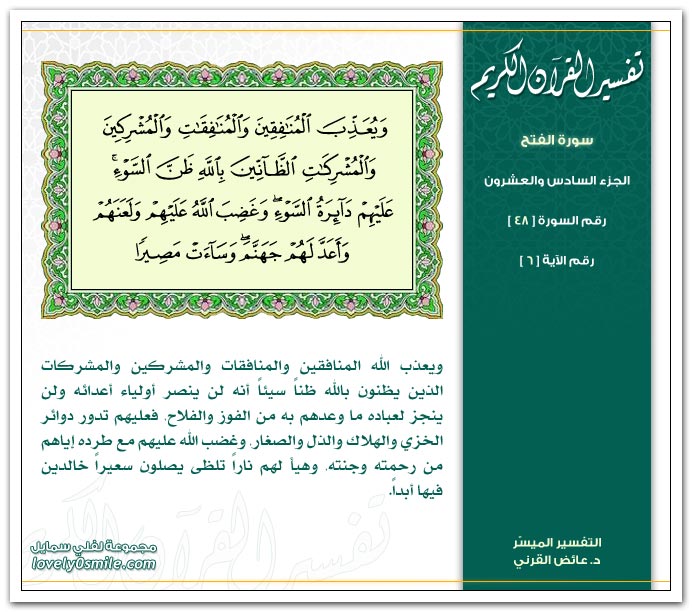 تفسير القرآن الكريم
سورة الفتح
الجزء السادس والعشرون
رقم السورة [ ٤٨ ]
رقم الآية [ ٦ ]
وَيُعَذِّبَ ٱلْمُنَـٰفِقِينَ وَٱلْمُنَـٰفِقَـٰتِ وَٱلْمُشْرِكِينَ
وَٱلْمُشْرِكَـٰتِ ٱلظَّآنِّينَ بِٱللَّهِ ظَنَّ ٱلسَّوْءِ ۚ
عَلَيْهِمْ دَآئِرَةُ ٱلسَّوْءِ ۖ وَغَضِبَ ٱللَّهُ عَلَيْهِمْ وَلَعَنَهُمْ
وَأَعَدَّ لَهُمْ جَهَنَّمَ ۖ وَسَآءَتْ مَصِيرًا
ويعذب الله المنافقين والمنافقات والمشركين والمشركات
الذين يظنون بالله ظناً سيئاً أنه لن ينصر أولياء أعدائه ولن
ينجز لعباده ما وعدهم به من الفوز والفلاح، فعليهم تدور دوائر
الخزي والهلاك والذل والصغار، وغضب الله عليهم مع طرده إياهم
من رحمته وجنته، وهيأ لهم ناراً تلظى يصلون سعيراً خالدين
فيها أبداً.
التفسير الميسّر
د. عائض القرني
مجموعة لفلي سمايل
lovely0smile.com
تفسير القرآن الكريم